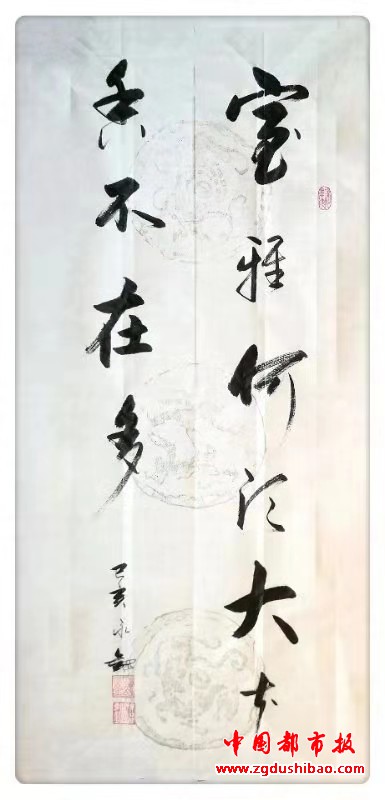 室雅何须大花
香不在多
己亥永
中国都市报
www.zgdushibao.com